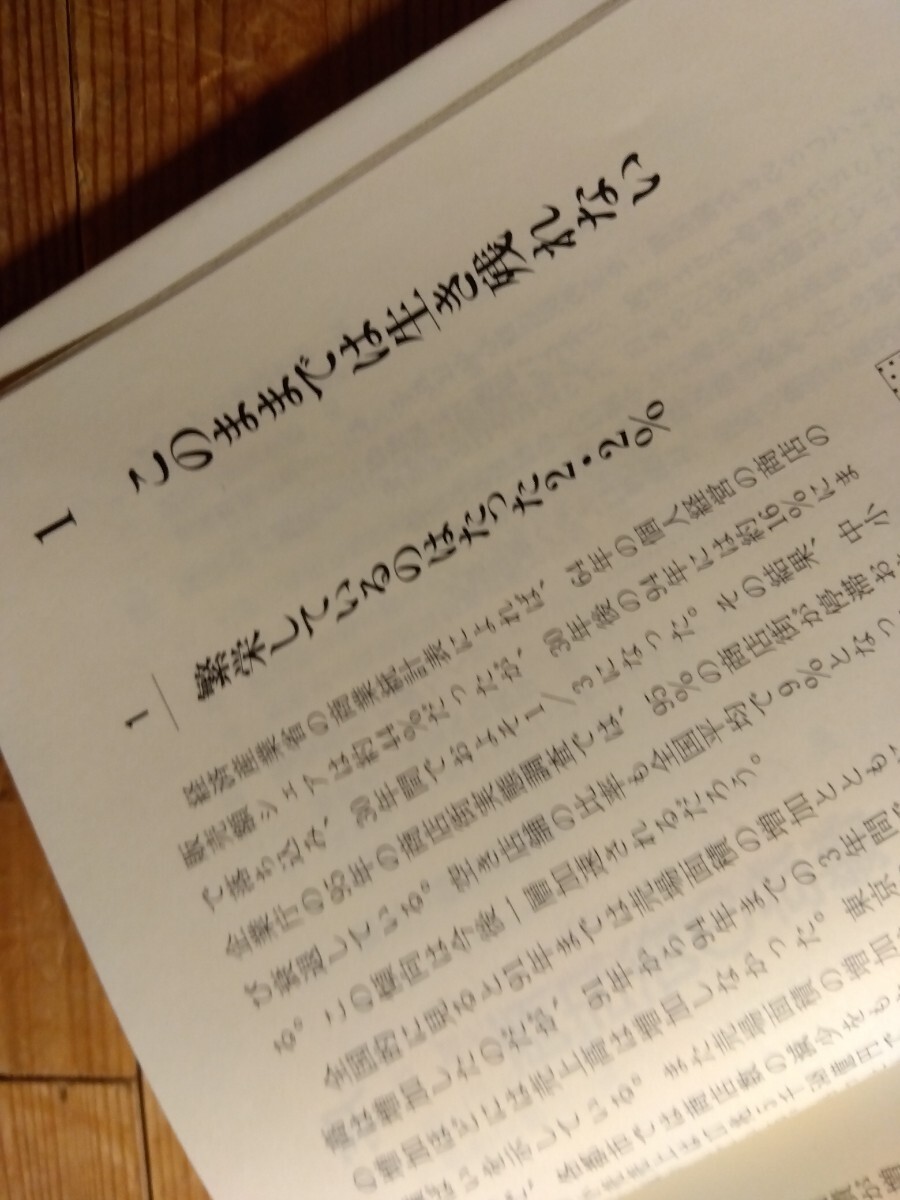 1 このままでは生き残れない
1 繁栄しているのはたった2・2%
経済産業省の商業統計表によれば、64年の個人経営の商店の
販売額シェアは約44%だったが、30年後の94年には約16%にま
で落ち込み、30年間でおよそ1/3になった。その結果、中小
企業庁の95年の商店街実態調査では、95%の商店街が停滞お
び衰退している。空き店舗の比率も全国平均で9%となっ
る。この傾向は今後一層加速されるだろう。
全国的に見ると91年までは売場面積の増加ととも
高は増加したのだが、91年から94年までの3年間
の増加ほどには売上高は増加しなかった。東京
を示している。また売場面積の増加
では商店数の減少をも